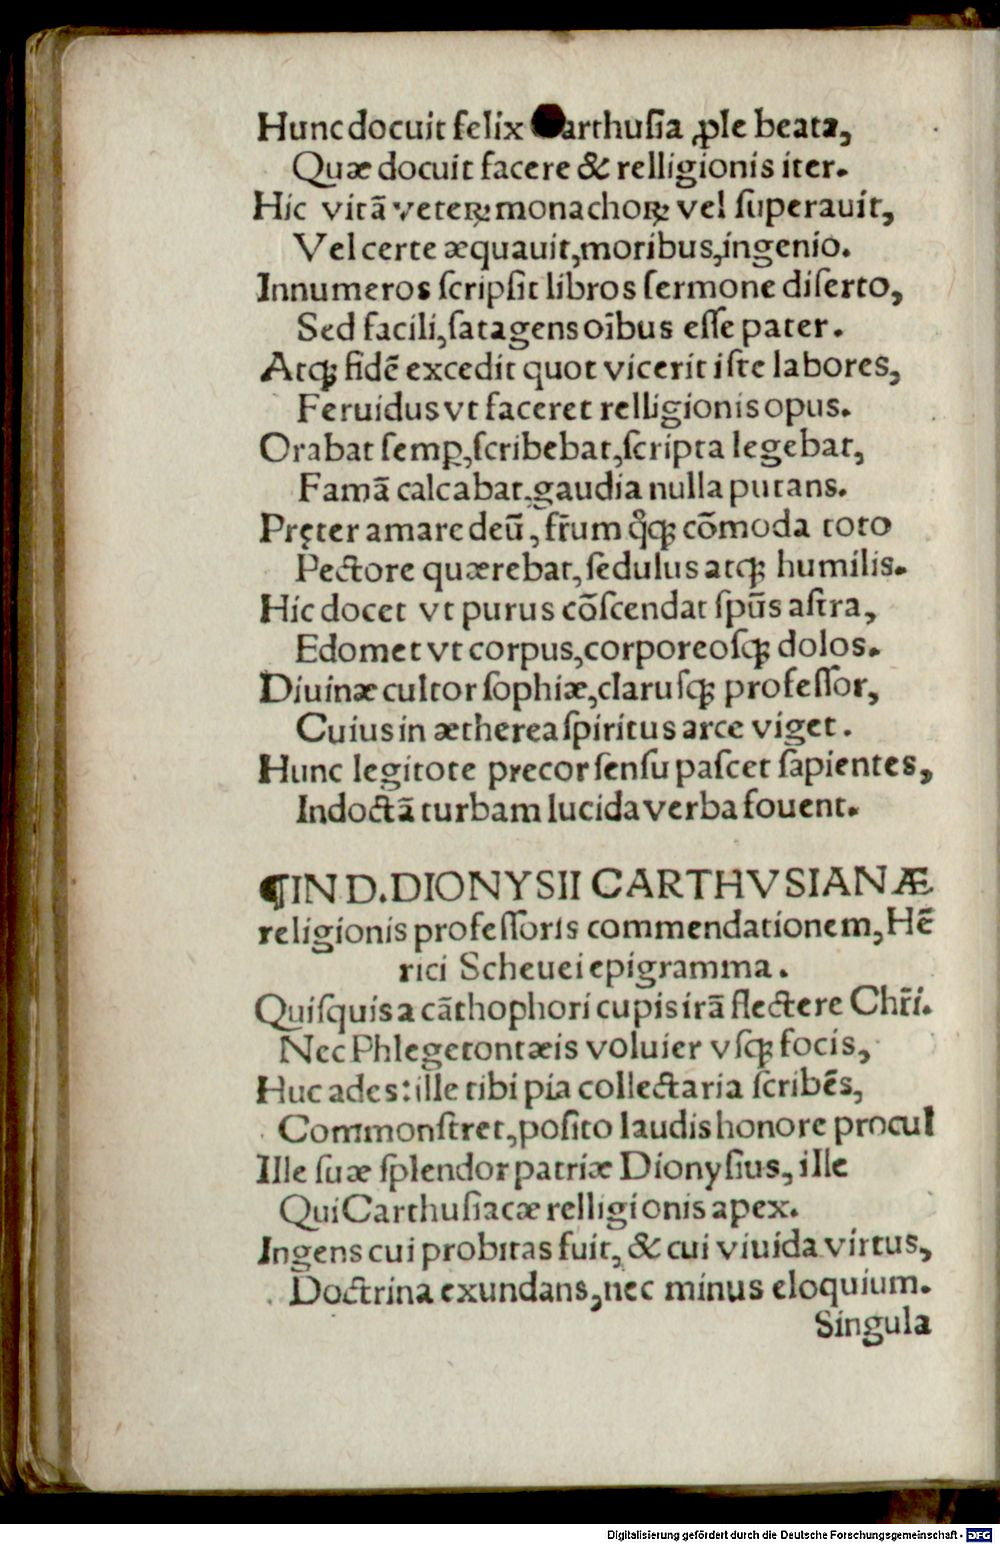 Hunc docuit felix Carthusia ꝓle beata,
Quæ docuit facere & relligionis iter.
Hic vitā veteꝝ monachoꝝ vel ſuperauit,
Vel certe æquauit, moribus, ingenio.
Innumeros ſcripſit libros ſermone diſerto,
Sed facili, ſatagens oībus eſſe pater.
Atqꝫ fidē excedit quot vicerit iſte labores,
Feruidus vt faceret relligionis opus.
Orabat ſemꝑ, ſcribebat, ſcripta legebat,
Famā calcabat, gaudia nulla putans.
Pręter amare deū, fr̄um qͦqꝫ cōmoda toto
Pectore quærebat, ſedulus atqꝫ humilis.
Hic docet vt purus cōſcendat ſpūs aſtra,
Edomet vt corpus, corporeoſqꝫ dolos.
Diuinæ cultor ſophiæ, claruſqꝫ profeſſor,
Cuius in ætherea ſpiritus arce viget.
Hunc legitote precor ſenſu paſcet ſapientes,
Indoctā turbam lucida verba fouent.
¶IN D. DIONYSII CARTHVSIANÆ
religionis profeſſoris commendationem, Hē
rici Scheuei epigramma.
Quiſquis a cāthophori cupis irā flectere Chr̄i.
Nec Phlegetontæis voluier vſqꝫ focis,
Huc ades: ille tibi pia collectaria ſcribēs,
Commonſtret, poſito laudis honore procul
Ille ſuæ ſplendor patriæ Dionyſius, ille
Qui Carthuſiacæ relligionis apex.
Ingens cui probitas fuit, & cui viuida virtus,
Doctrina exundans, nec minus eloquium.
Singula
Digitalisierung gefördert durch die Deutsche Forschungsgemeinschaft - DFG